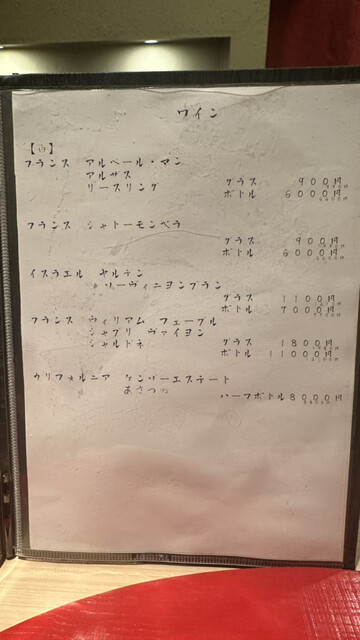 ワイン
【白】
フランス アルベール・マン
アルザス
リースリング グラス 900円
ボトル 6000円
フランス シャトーモンペラ
グラス 900円
ボトル 6000円
イスラエル ヤルデン
ソーヴィニヨンブラン
グラス 1100円
ボトル 7000円
フランス ウィリアム フェーブル
シャブリ ヴァイヨン
シャルドネ グラス 1800円
ボトル 11000円
カリフォルニア ケンゾーエステート
あさつゆ
ハーフボトル 8000円